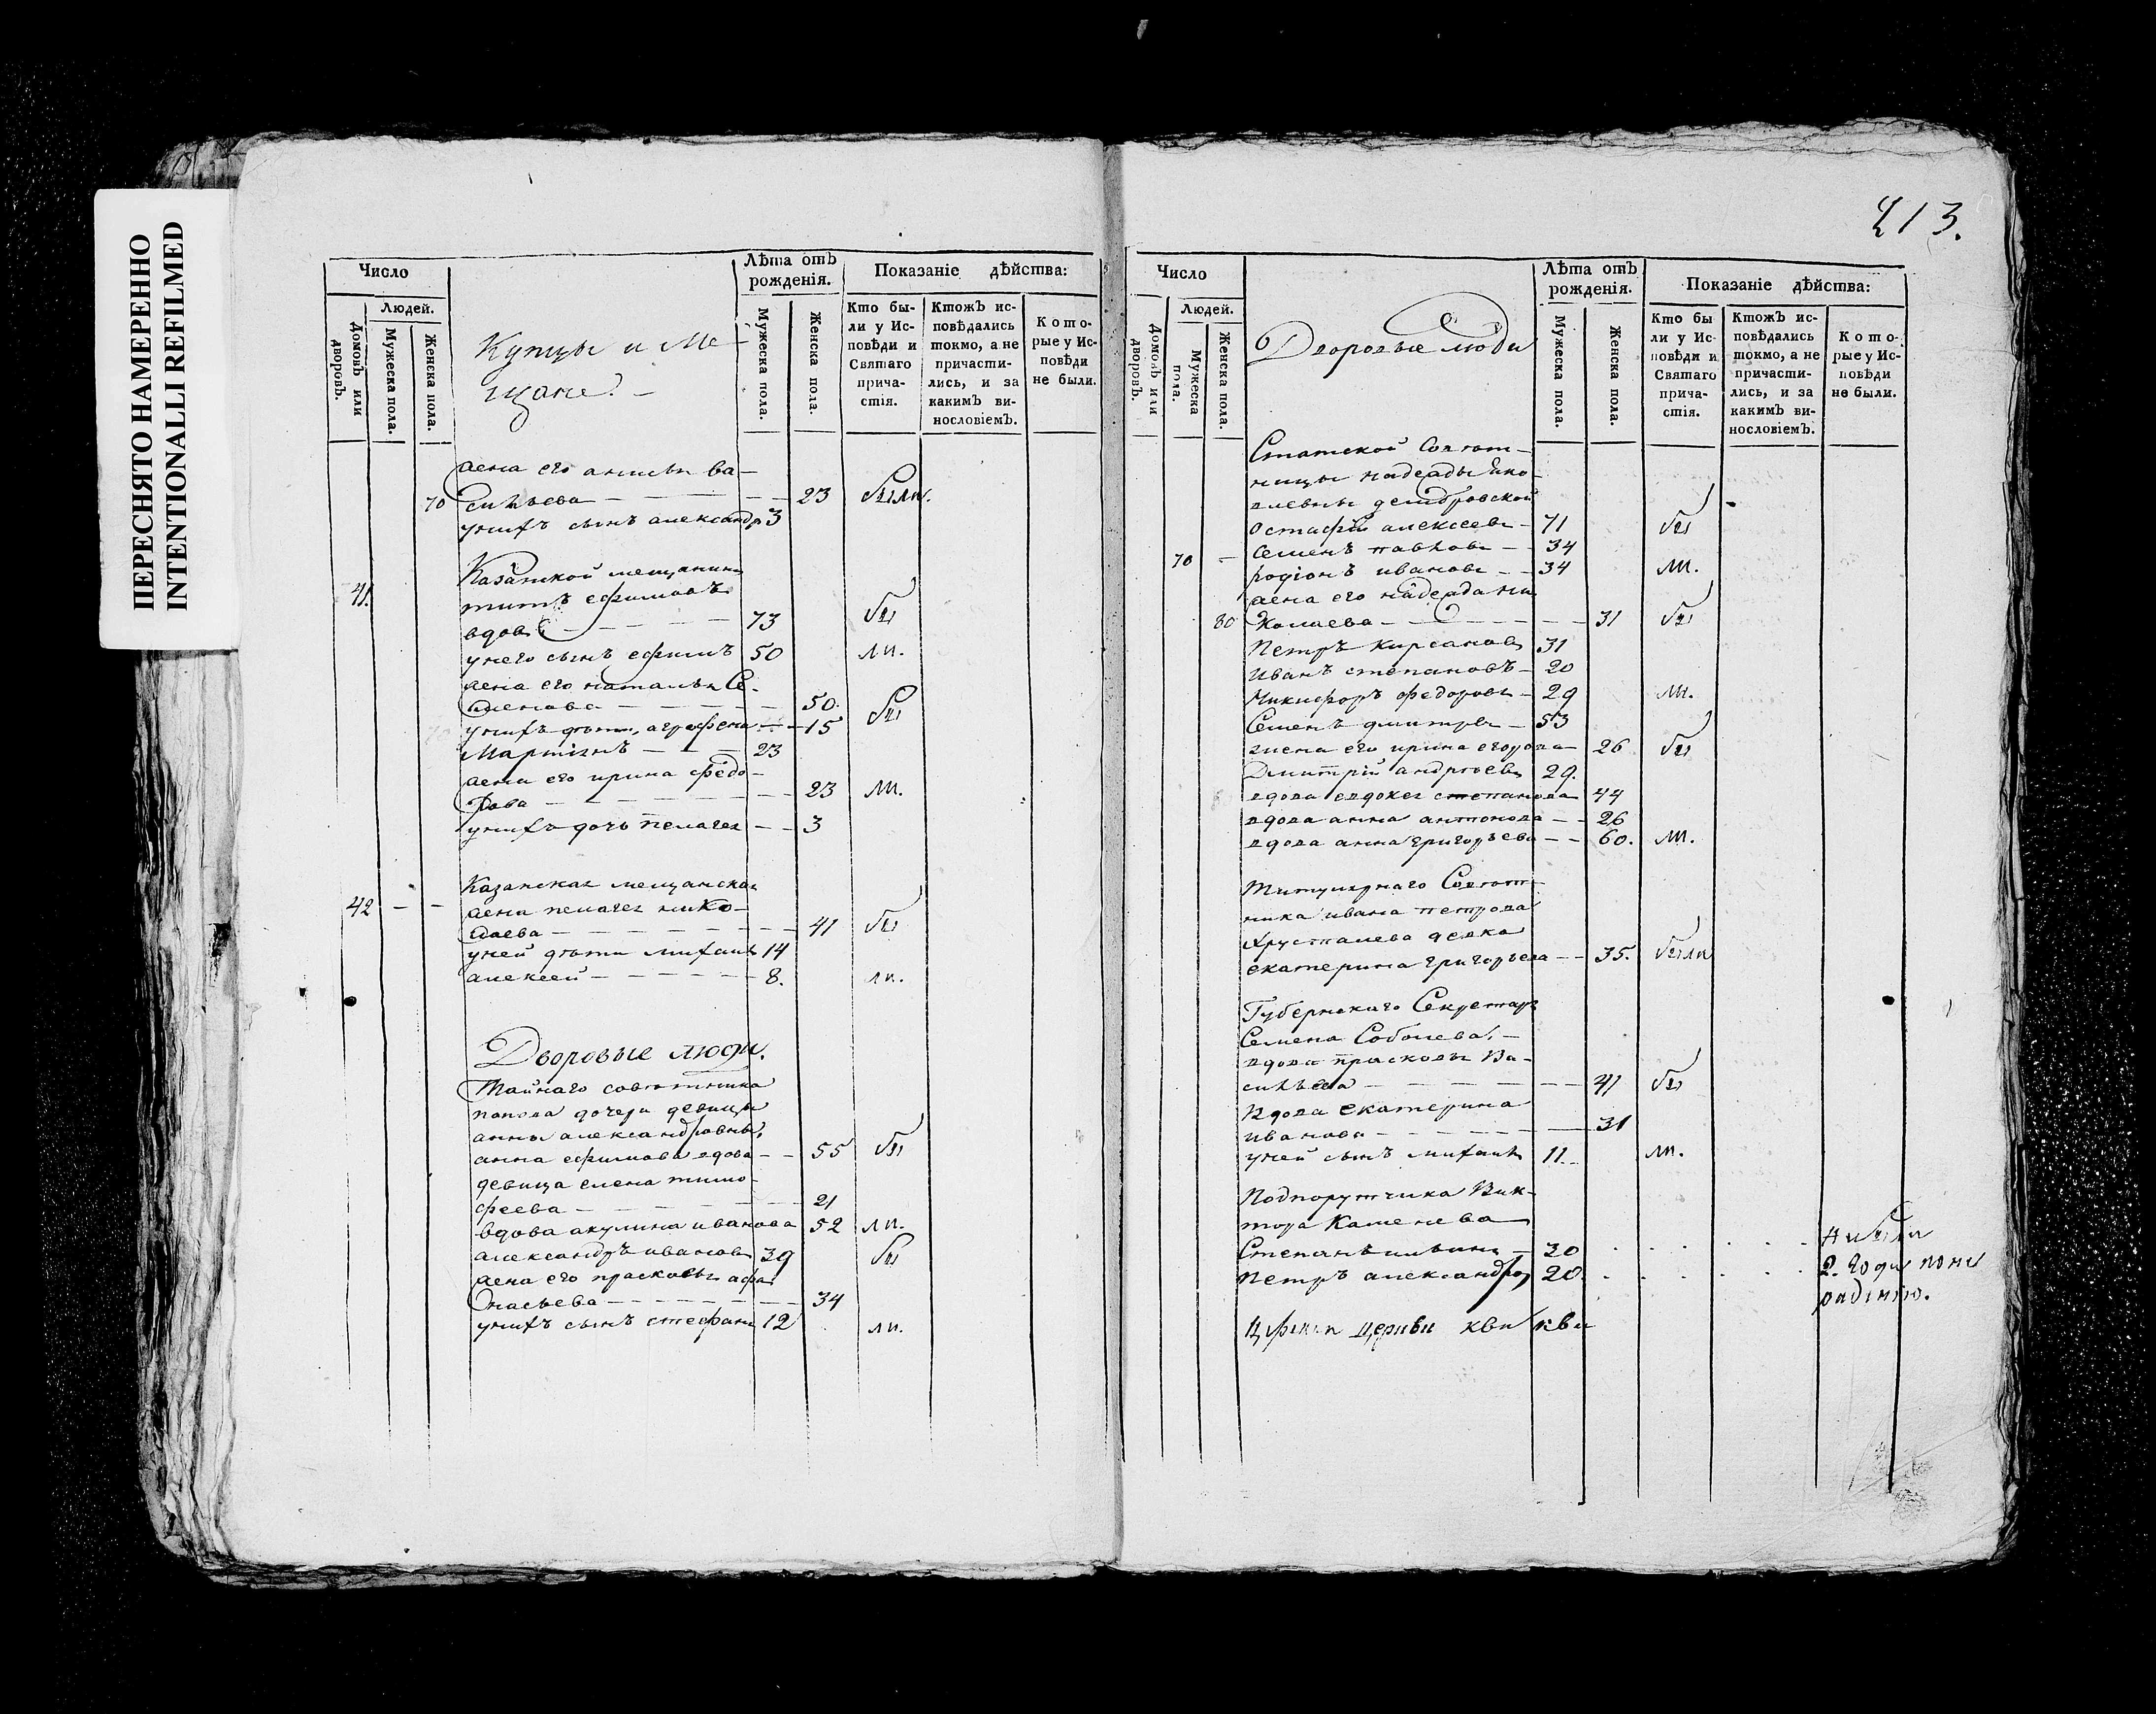 ПЕРЕСНЯТО НАМЕРЕННО
INTENTIONALLI REFILMED
Число
Людей.
Домовъ или дворовъ.
Мужеска пола.
Женска пола.
Купцы и Ме-
щане. -
Лѣта отъ
рожденія.
Мужеска пола.
Женска пола.
Показаніе дѣйства:
Кто бы-
ли у Ис-
повѣди и
Святаго
прича-
стія.
Ктожъ ис-
повѣдались
токмо, а не
причасти-
лись, и за
какимъ ви-
нословіемъ.
Кото-
рые у Ис-
повѣди
не были.
жена его Ва-
70 сильева - - - 23 были.
у нихъ сынъ александръ 3
Казанской мещанинъ
41. титъ ефимовъ
вдовъ - - - 73 бы
у него сынъ ефимъ 50 ли.
жена его наталья Се-
менова - - - 50. бы
у нихъ дѣти, аграфена - - 15
Мартинъ - - - 23
жена его ирина федо-
рова - - - 23 ли.
у нихъ дочь пелагея - - 3
Казанская мещанская
42 - - жена пелагея нико-
лаева - - - 41 бы
у ней дѣти михаилъ 14
алексей - - - 8. ли.
Дворовые люди.
Тайнаго совѣтника
попова дочери девицы
анны александровны,
анна ефимова вдова - - 55 бы
девица елена тимо-
феева - - - 21
вдова акулина иванова 52 ли.
александръ ивановъ 39 бы
жена его прасковья афа-
насьева - - - 34
у нихъ сынъ стефанъ 12 ли.
413.
Число
Людей.
Домовъ или дворовъ.
Мужеска пола.
Женска пола.
Дворовые люди
Лѣта отъ
рожденія.
Мужеска пола.
Женска пола.
Показаніе дѣйства:
Кто бы
ли у Ис-
повѣди и
Святаго
прича-
стія.
Ктожъ ис-
повѣдались
токмо, а не
причасти-
лись, и за
какимъ ви-
нословіемъ.
Кото-
рые у Ис-
повѣди
не были.
Статской Совѣт-
ницы надежды Яко-
влевны
Остафій алексеевъ - 71 бы
Семенъ павловъ - - 34
70 - родіонъ ивановъ - - 34 ли.
жена его надежда Ни
80 колаева - - - 31 бы
Петръ Кирсановъ 31
Иванъ степановъ - 20
Никифоръ федоровъ - 29 ли.
Семенъ дмитревъ - 53
жена его ирина егорова - 26 бы
Дмитрій андреевъ 29.
вдова евдокея степанова 44
вдова анна антонова - - 26
вдова анна григорьева - - 60. ли.
Титулярнаго Совѣт-
ника ивана петрова
Хрусталева девка
екатерина григорьева - - 35. были
Губернскаго Секретаря
Семена Соболева. -
вдова прасковья Ва-
сильева - - - 41 бы
Вдова екатерина
иванова - - - 31
у ней сынъ михаилъ 11. ли.
Подпорутчика Вик-
тора Каменева
Степанъ ильинъ - 30 небыли
Петръ александровъ 20. 2. года по не
радѣнію.